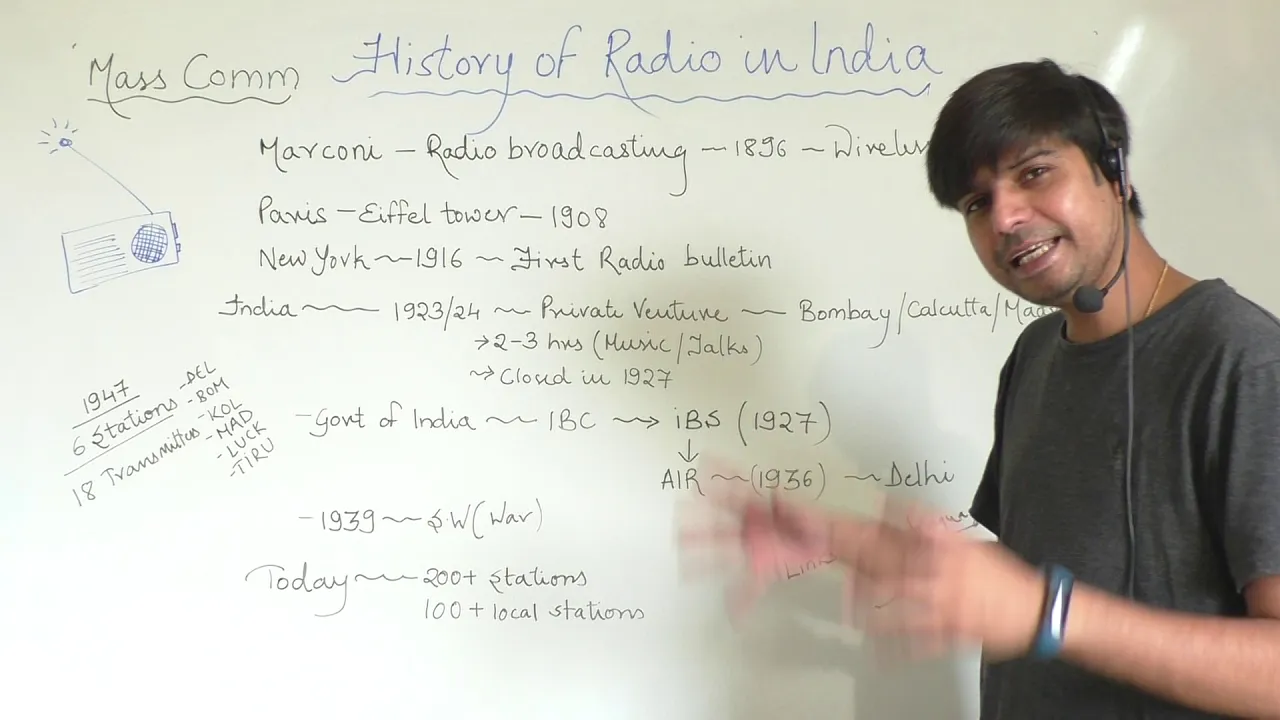 Mass Comm
History of Radio in India
Marconi - Radio broadcasting ~ 1896 ~
Paris - Eiffel tower - 1908
New York ~ 1916 ~ First Radio bulletin
India ~ 1923/24 ~ Private Venture ~ Bombay/Calcutta/
→ 2-3 hrs (Music/Talks)
→ Closed in 1927
1947
6 Stations - DEL
- BOM
- KOL
- MAD
- LUCK
- TIRU
18 Transmitters
- Govt of India ~ IBC → IBS (1927)
↓
AIR ~ (1936) ~ Delhi
- 1939 ~ S.W (War)
Today ~ 200+ Stations
100+ local stations